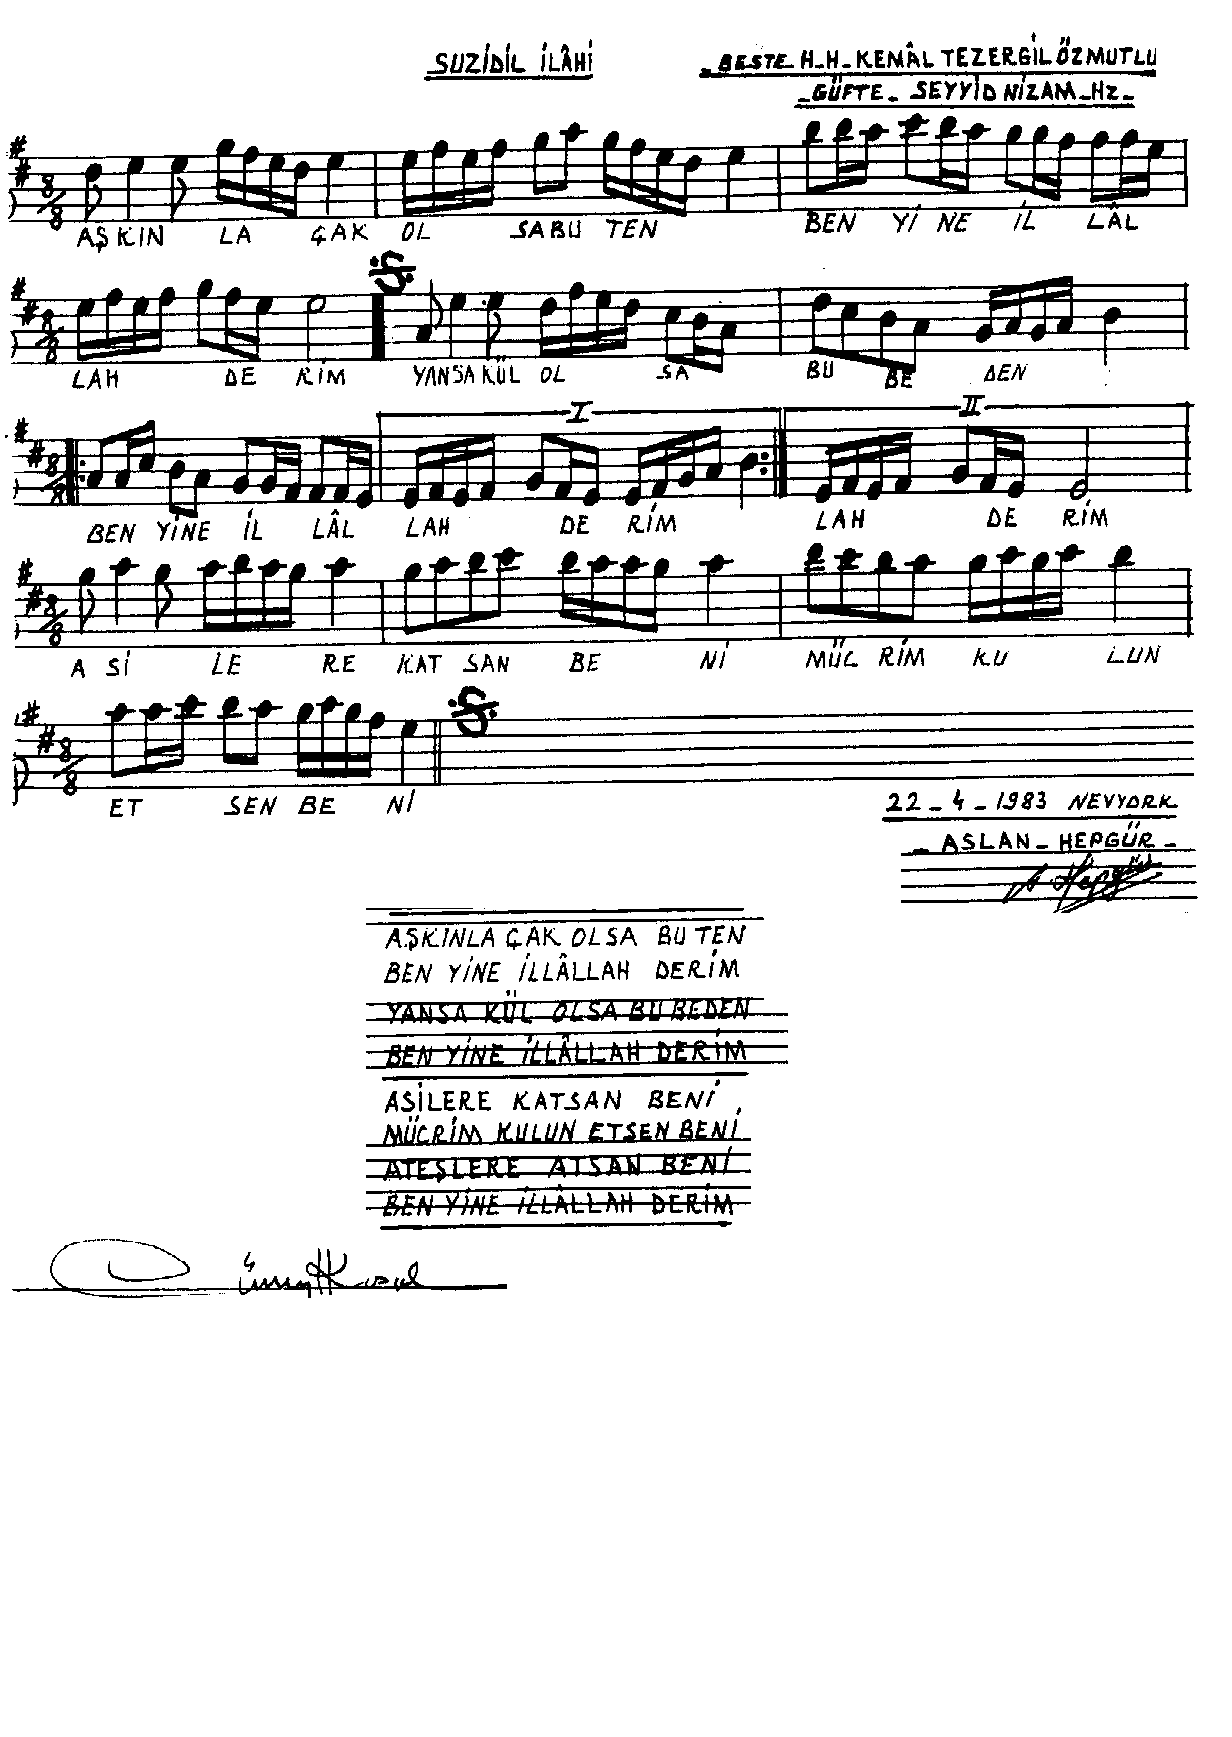 SUZİDİL İLÂHİ
BESTE H-H-KEMÂL TEZERGİL ÖZMUTLU
-GÜFTE- SEYYİD NİZAM-Hz-
8/8
AŞ KIN LA ÇAK OL SA BU TEN BEN Yİ NE İL LÂL
8/8
LAH DE RİM YANSA KÜL OL SA BU BE DEN
I II
8/8
BEN YİNE İL LÂL LAH DE RİM LAH DE RİM
8/8
A Sİ LE RE KAT SAN BE Nİ MÜC RİM KU LUN
8/8
ET SEN BE Nİ
22-4-1983 NEVYORK
-ASLAN-HEPGÜR-
AŞKINLA ÇAK OLSA BU TEN
BEN YİNE İLLÂLLAH DERİM
YANSA KÜL OLSA BU BEDEN
BEN YİNE İLLÂLLAH DERİM
ASİLERE KATSAN BENİ
MÜCRİM KULUN ETSEN BENİ
ATEŞLERE ATSAN BENİ
BEN YİNE İLLÂLLAH DERİM